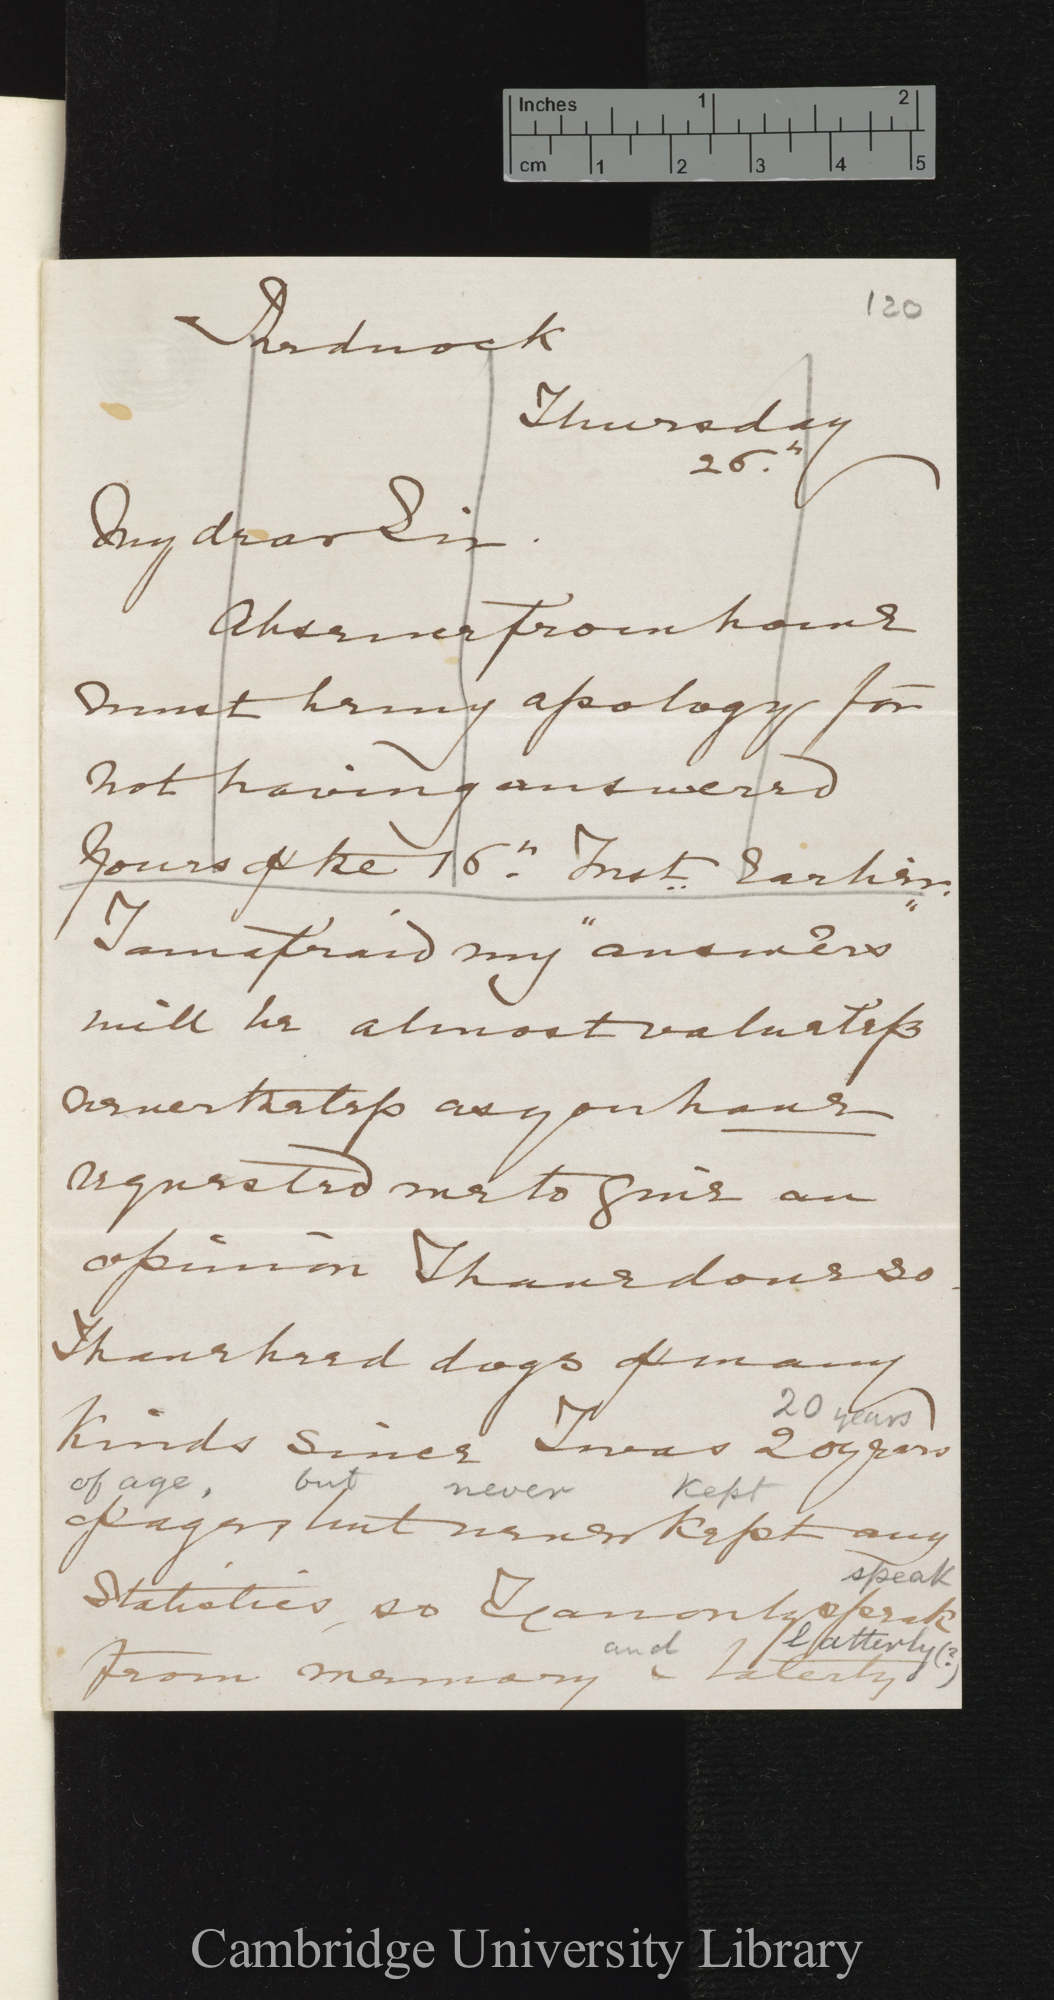 Inches 1 2
cm 1 2 3 4 5
120
Ardnock
Thursday
26.th
My dear Sir.
Absence from home
must be my apology for
not having answered
Yours of the 16.th Inst. Earlier.
I am afraid my "answers"
will be almost valueless
nevertheless as you have
requested me to give an
opinion I have done so
I have bred dogs of many
20 years
Kinds since I was 20 years
of age, but never kept
of age, but never kept any
speak
Statistics, so I can only speak
and latterly (?)
from memory & laterly
Cambridge University Library